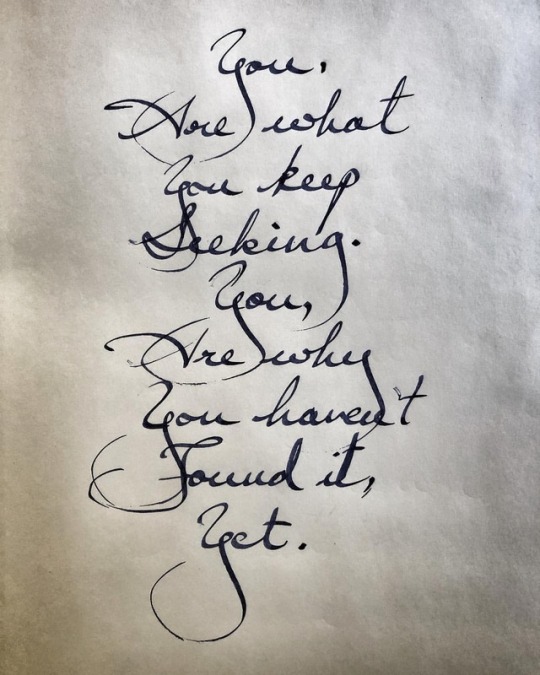 You,
Are what
You keep
Seeking.
You,
Are why
You haven't
Found it,
Yet.